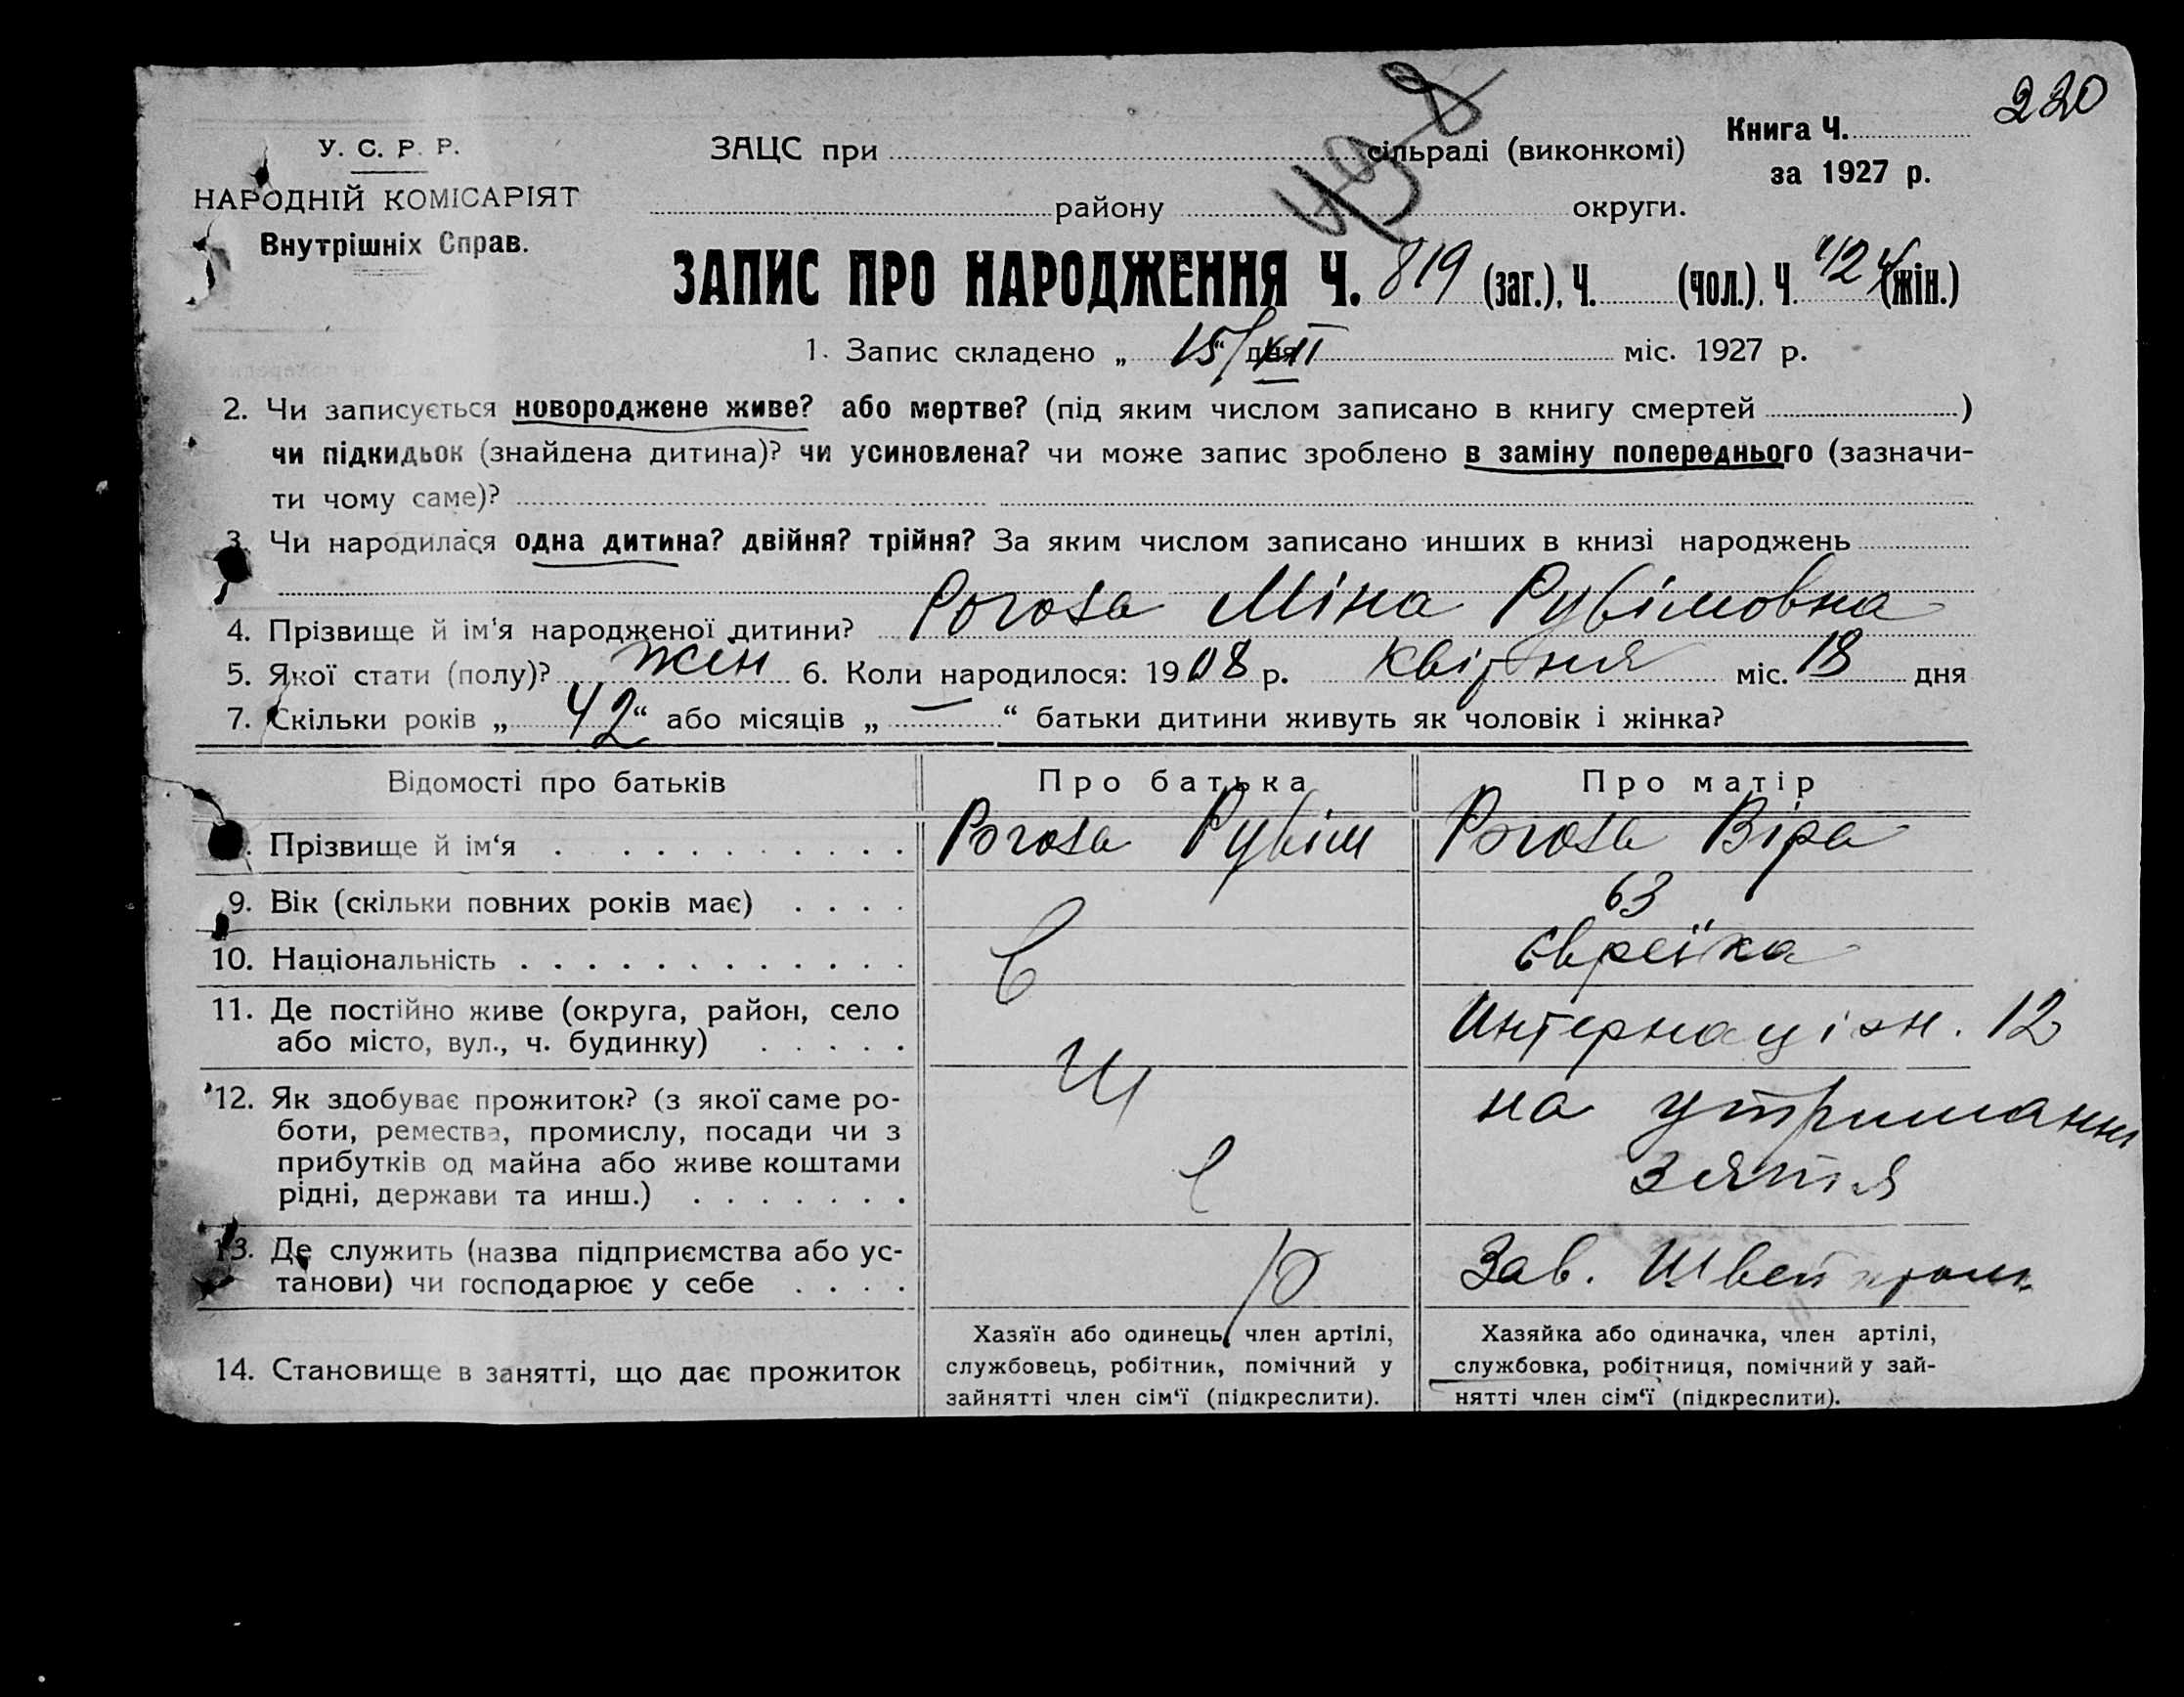 220
У. С. Р. Р.
НАРОДНІЙ КОМІСАРІЯТ
Внутрішніх Справ.
ЗАЦС при сільраді (виконкомі)
району округи.
Книга Ч.
за 1927 р.
ЗАПИС ПРО НАРОДЖЕННЯ Ч. 819 (заг.), Ч. (чол.), Ч. 424 (жін.)
1. Запис складено „ 15/XII “ дня міс. 1927 р.
2. Чи записується новороджене живе? або мертве? (під яким числом записано в книгу смертей )
чи підкидьок (знайдена дитина)? чи усиновлена? чи може запис зроблено в заміну попереднього (зазначи-
ти чому саме)?
3. Чи народилася одна дитина? двійня? трійня? За яким числом записано инших в книзі народжень
4. Прізвище й ім'я народженої дитини? Рогоза Міна Рувімовна
5. Якої стати (полу)? жін 6. Коли народилося: 1908 р. квітня міс. 18 дня
7. Скільки років „ 42 “ або місяців „ — “ батьки дитини живуть як чоловік і жінка?
Відомості про батьків Про батька Про матір
Прізвище й ім‘я . . . . . . . . . . Рогоза Рувім Рогоза Віра
9. Вік (скільки повних років має) . . . . 63
10. Національність . . . . . . . . . . . . . Єврейка
11. Де постійно живе (округа, район, село
або місто, вул., ч. будинку) . . . . . Интернаціон. 12
12. Як здобуває прожиток? (з якої саме ро-
боти, ремества, промислу, посади чи з
прибутків од майна або живе коштами
рідні, держави та инш.) . . . . . . .
В м е р
на утриманні
зятія
13. Де служить (назва підприємства або ус-
танови) чи господарює у себе . . . . Зав. Швейпром
14. Становище в занятті, що дає прожиток
Хазяїн або одинець, член артілі,
службовець, робітник, помічний у
зайнятті член сім‘ї (підкреслити).
Хазяйка або одиначка, член артілі,
службовка, робітниця, помічний у зай-
нятті член сім‘ї (підкреслити).